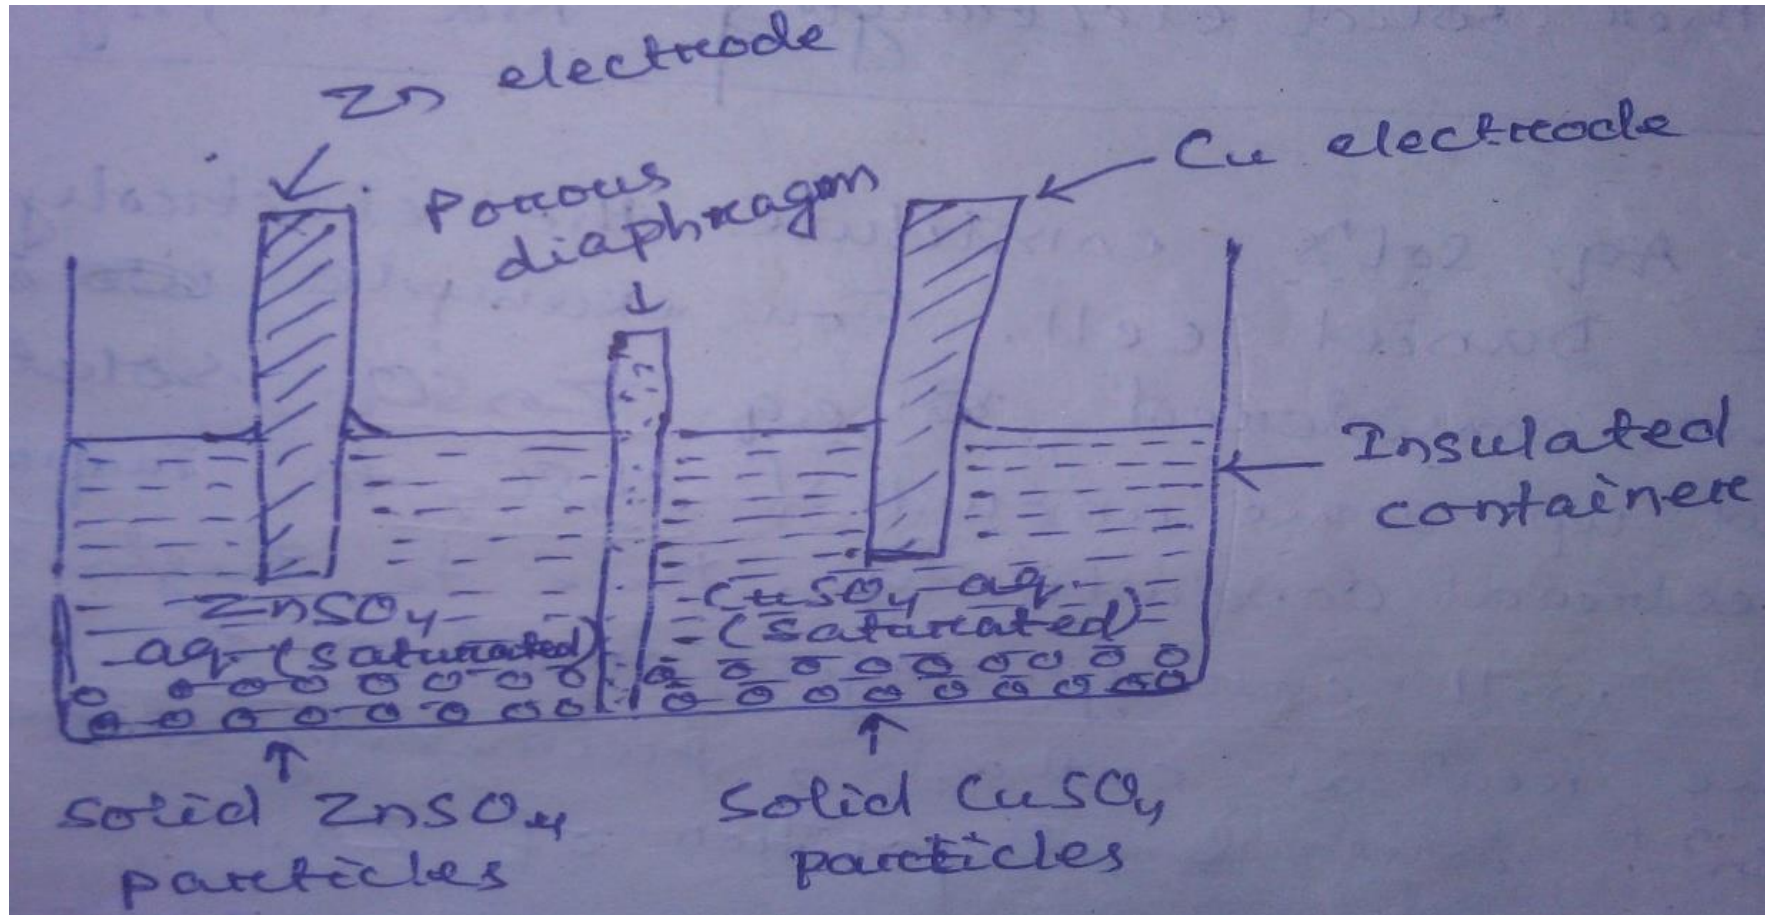 Zn electrode
Porous
diaphragm
Cu electrode
Insulated
container
ZnSO4
aq (saturated)
CuSO4 aq.
(saturated)
solid ZnSO4
particles
solid CuSO4
particles